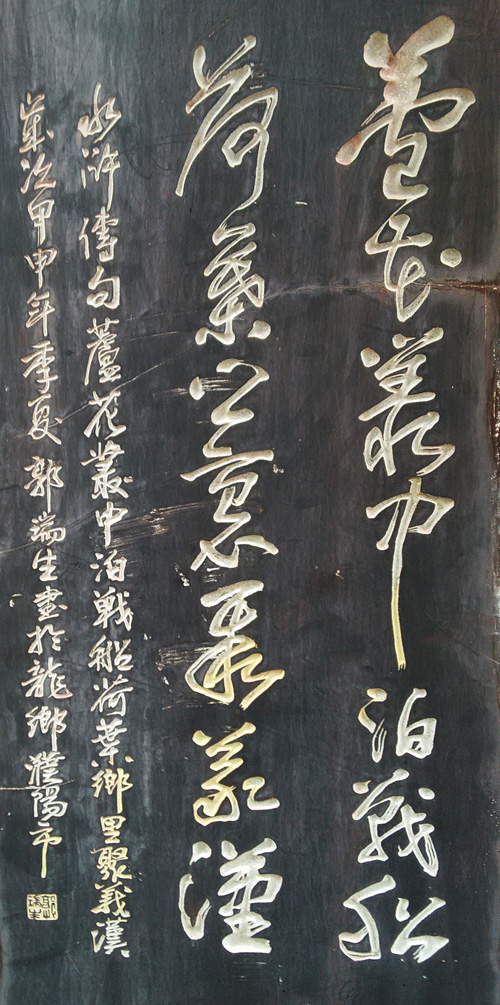 蘆花叢中泊戰船
荷葉鄉里聚義漢
水滸傳句蘆花叢中泊戰船荷葉鄉里聚義漢
歲次甲申年季夏郭瑞生書於龍鄉濮陽市